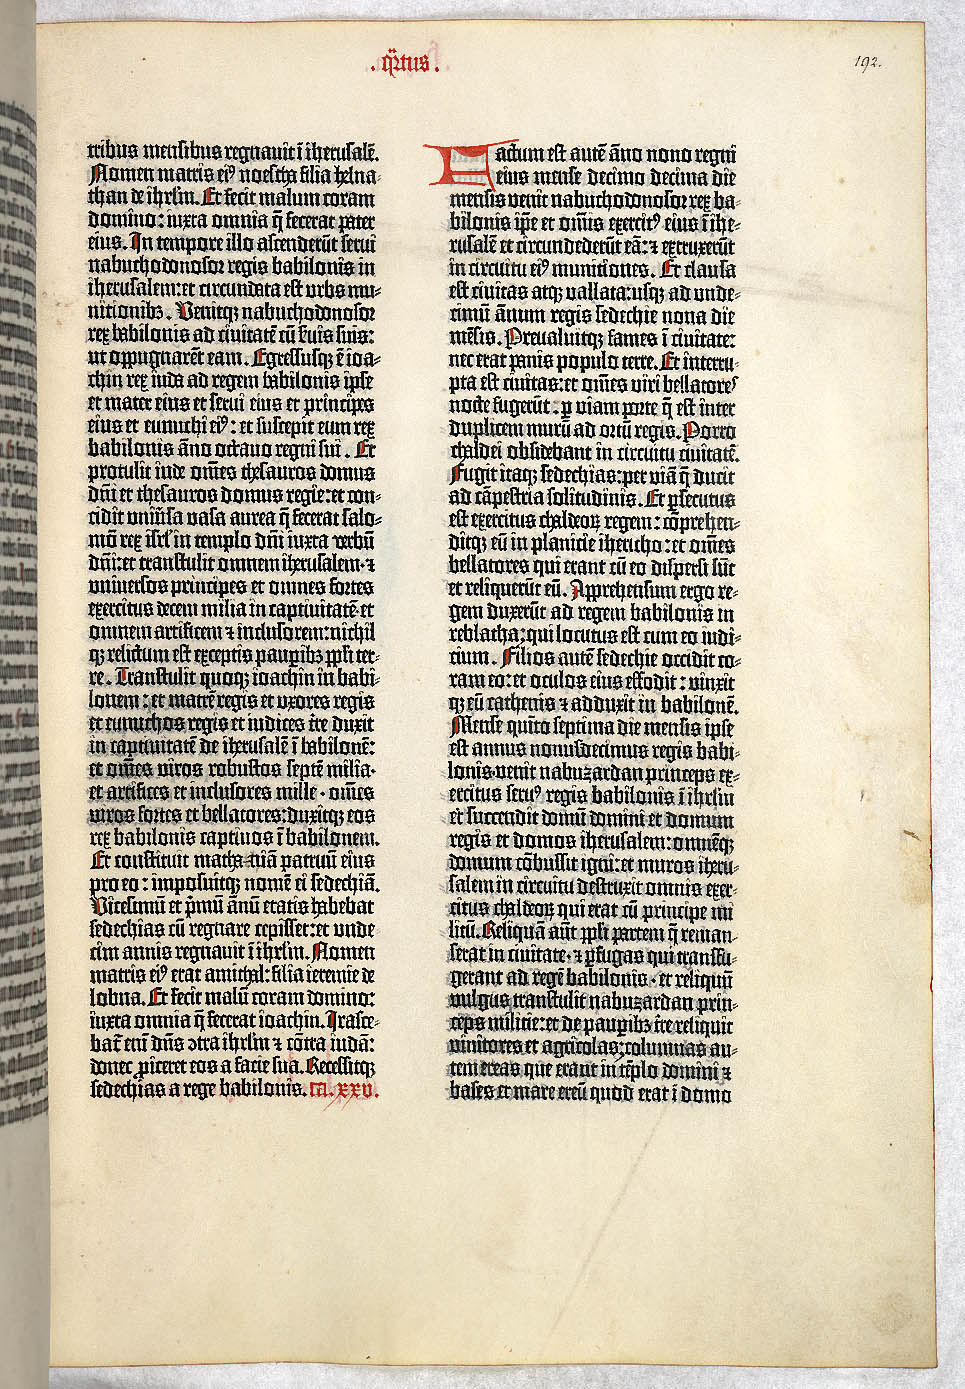 .q̄rtus.
192.
tribus mensibus regnauit ī iherusalē.
Nomen matris eiꝰ noestha filia helna-
than de ihrlm. Et fecit malum coram
domino: iuxta omnia q̄ fecerat pater
eius. In tempore illo ascenderūt serui
nabuchodonosor regis babilonis in
iherusalem: et circumdata est urbs mu-
nitionibꝫ. Venitqꝫ nabuchodonosor
rex babilonis ad ciuitatē cū ẜuis suis:
ut oppugnarēt eam. Egressusqꝫ ē ioa-
chin rex iuda ad regem babilonis ipse
et mater eius et serui eius et principes
eius et eunuchi eiꝰ: et suscepit eum rex
babilonis āno octauo regni sui. Et
protulit inde om̄es thesauros domus
dn̄i et thesauros domus regie: et con-
cidit uniūsa vasa aurea q̄ fecerat salo-
mō rex isrl in templo dn̄i iuxta verbū
dn̄i: et transtulit omnem iherusalem· ⁊
uniuersos principes et omnes fortes
exercitus decem milia in captiuitatē· et
omnem artificem ⁊ inclusorem: nichil
qꝫ relictum est exceptis pauꝑibꝫ ppl̄i ter-
re. Transtulit quoqꝫ ioachin in babi-
lonem: et matrē regis et vxores regis
et eunuchos regis et iudices t̄re duxit
in captiuitatē de iherusalē ī babilonē:
et om̄es viros robustos septē milia·
et artifices et inclusores mille · om̄es
uiros fortes et bellatores: duxitqꝫ eos
rex babilonis captiuos ī babilonem.
Et constituit mathaniā patruū eius
pro eo: imposuitqꝫ nomē ei sedechiā.
Vicesimū et p̄mū ānū etatis habebat
sedechias cū regnare cepisset: et unde-
cim annis regnauit ī ihrlm. Nomen
matris eiꝰ erat amithal: filia ieremie de
lobna. Et fecit malū coram domino:
iuxta omnia q̄ fecerat ioachin. Irasce-
bat̄ eni dn̄s ↄtra ihrlm ⁊ cōtra iudā:
donec ꝓiceret eos a facie sua. Recessitqꝫ
sedechias a rege babilonis. ca. xxv.
Factum est autē āno nono regni
eius mense decimo decima die
mensis venit nabuchodonosor rex ba-
bilonis ip̄e et om̄is exercitꝰ eius ī ihe-
rusalē et circundederūt eā: ⁊ extruxerūt
in circuitu eiꝰ munitiones. Et clausa
est ciuitas atqꝫ vallata: usqꝫ ad vnde-
cimū ānum regis sedechie nona die
mēsis. Preualuitqꝫ fames ī ciuitate:
nec erat panis populo terre. Et interru-
pta est ciuitas: et om̄es viri bellatores
nocte fugerūt · ꝑ viam porte q̄ est inter
duplicem murū ad ortū regis. Porro
chaldei obsidebant in circuitu ciuitatē.
Fugit itaqꝫ sedechias: per viā q̄ ducit
ad cāpestria solitudinis. Et ꝑsecutus
est exercitus chaldeoꝝ regem: cōprehen-
ditqꝫ eū in planicie ihericho: et om̄es
bellatores qui erant cū eo dispersi sūt
et reliquerūt eū. Apprehensum ergo re-
gem duxerūt ad regem babilonis in
reblatha: qui locutus est cum eo iudi-
cium. Filios autē sedechie occidit co-
ram eo: et oculos eius effodit: vinxit
qꝫ eū cathenis ⁊ adduxit in babilonē.
Mense quīto septima die mensis ipse
est annus nonusdecimus regis babi-
lonis· venit nabuzardan princeps ex-
ercitus seruꝰ regis babilonis ī ihrlm
et succendit domū domini et domum
regis et domos iherusalem: omnēqꝫ
domum cōbussit igni: et muros iheru-
salem in circuitu destruxit omnis exer-
citus chaldeoꝝ qui erat cū principe mi
litū. Reliquā aūt ppl̄i partem q̄ reman-
serat in ciuitate· ⁊ ꝑfugas qui transfu-
gerant ad regē babilonis · et reliquū
vulgus transtulit nabuzardan prin-
ceps milicie: et de pauꝑibꝫ t̄re reliquit
vinitores et agricolas: columnas au-
tem ereas que erant in tēplo domini ⁊
bases et mare ereū quod erat ī domo